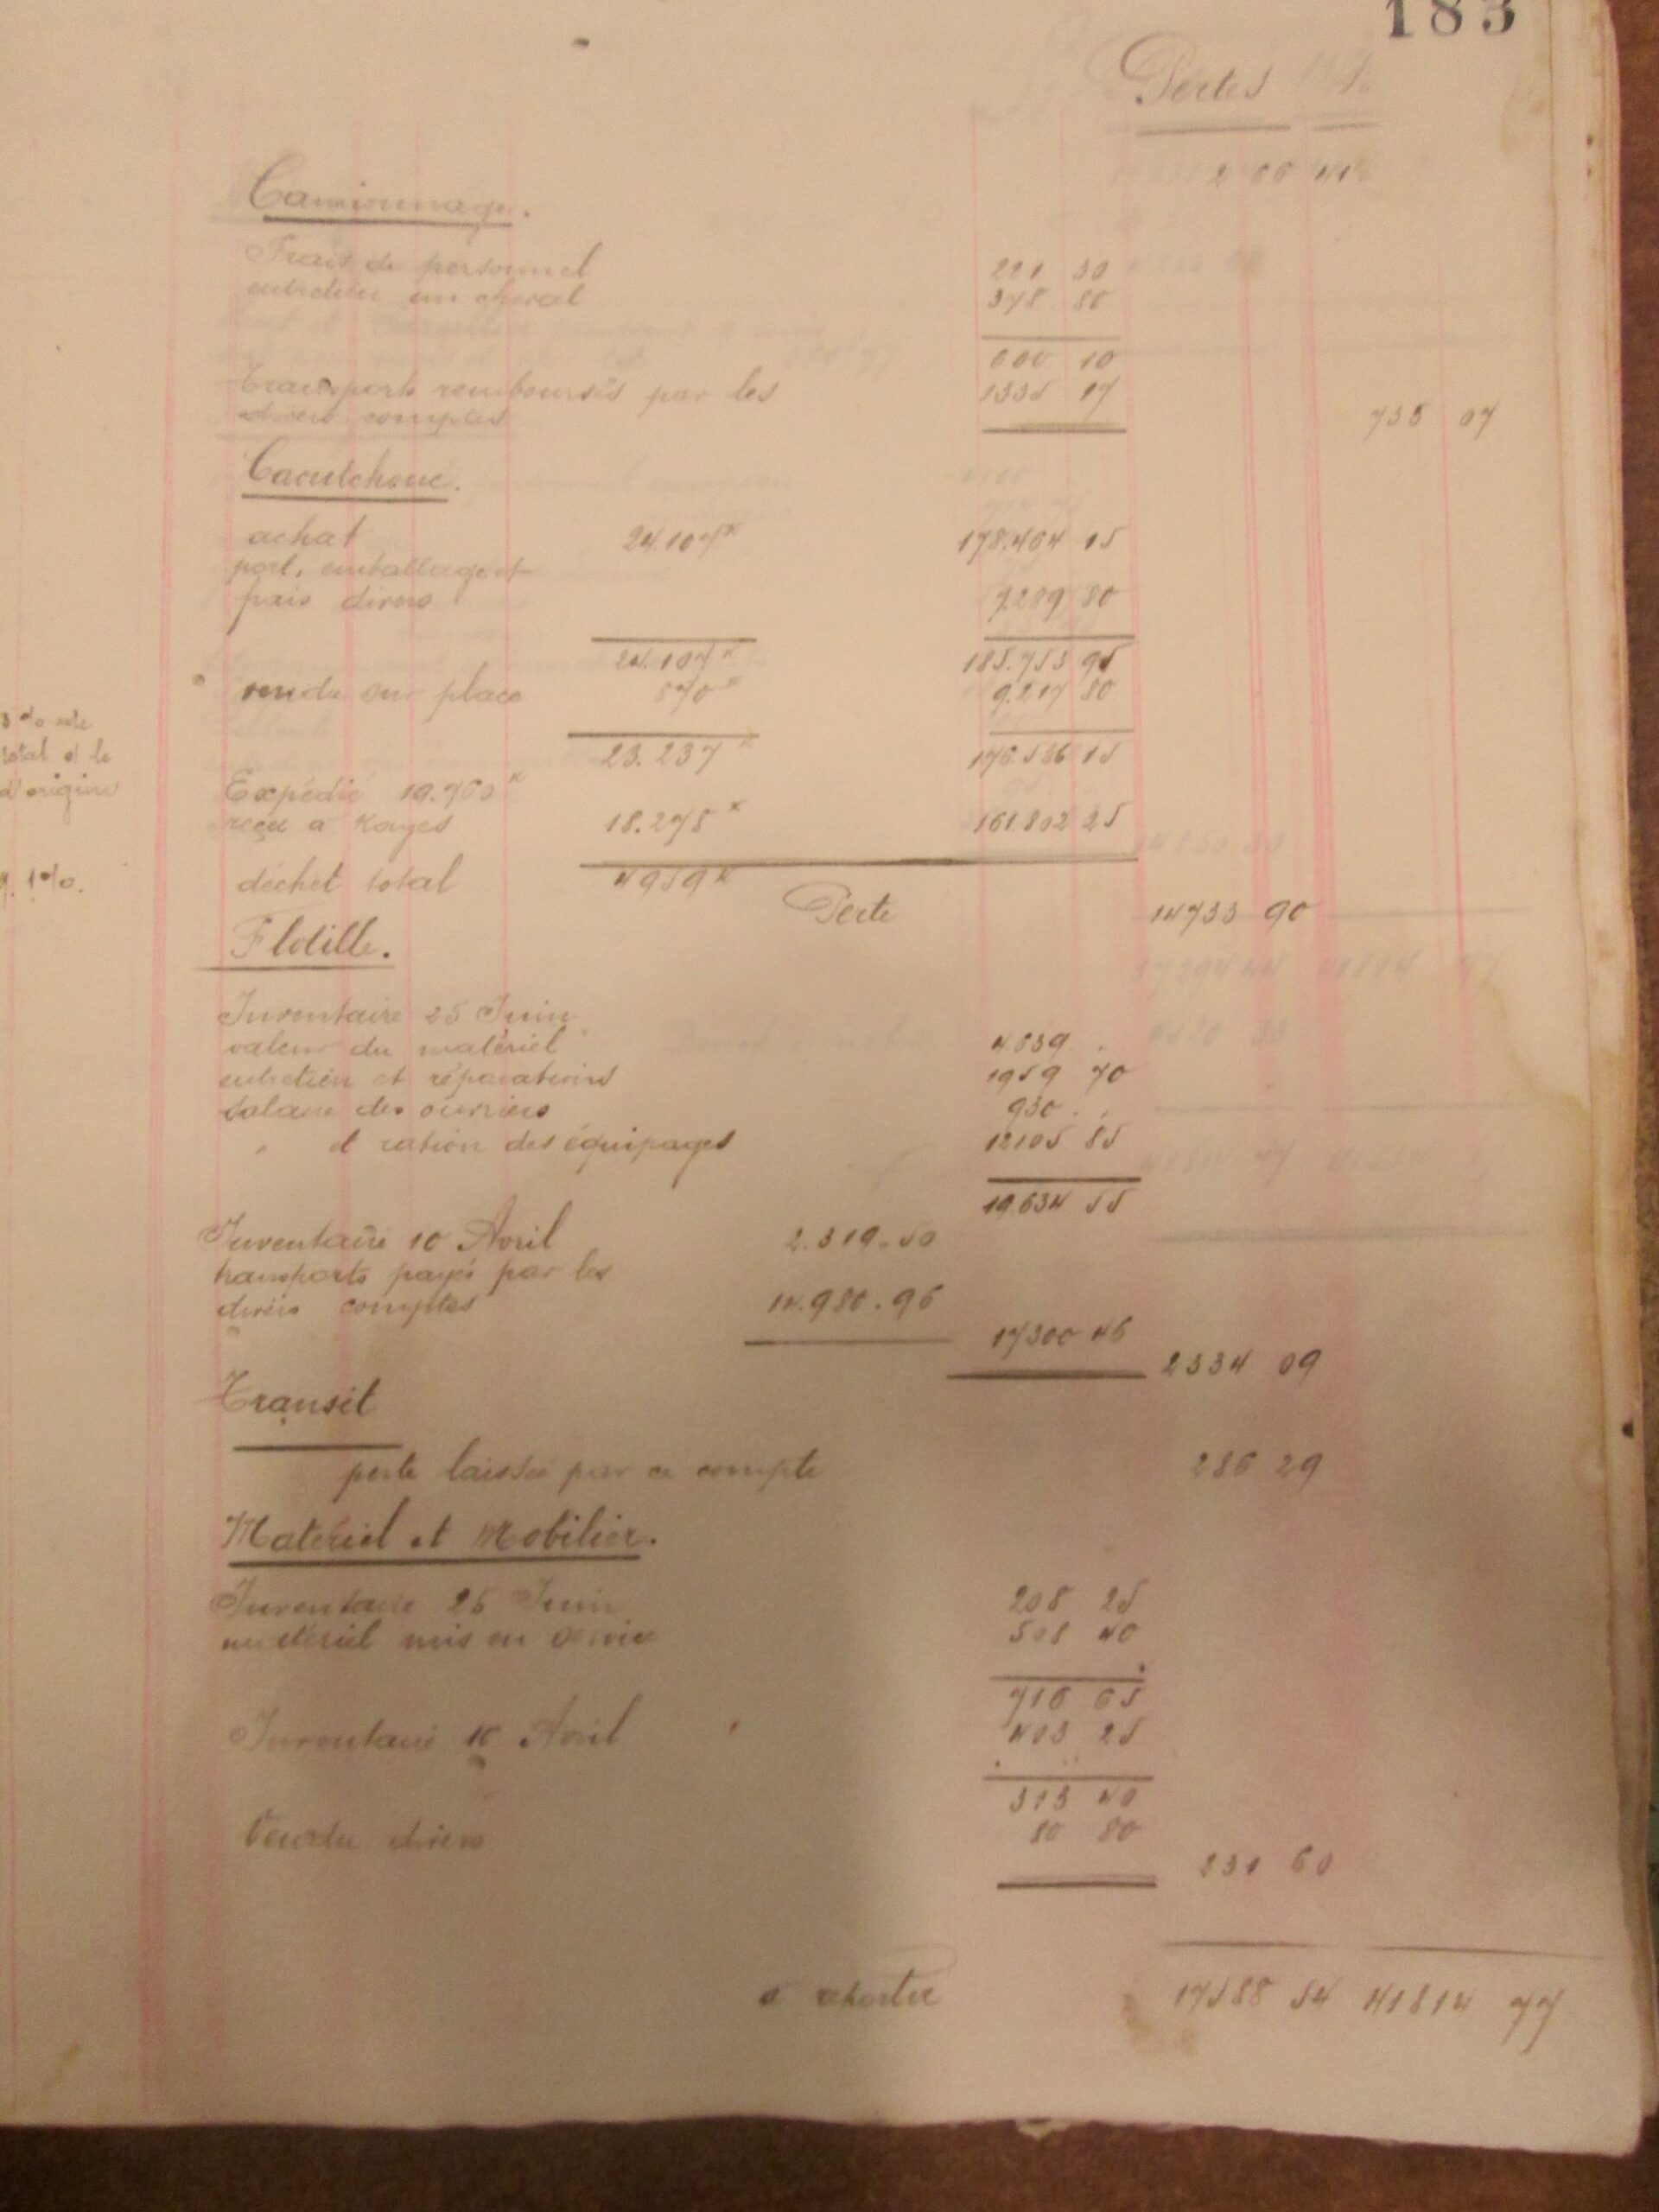 183
Pertes
2 66 41
Camionnage.
Frais de personnel 221 30
entretien un cheval 378 80
600 10
Transports remboursés par les 1335 17
divers comptes 735 07
Caoutchouc.
achat 24.107k 178.464 15
port, emballage et
frais divers 7.289 80
24.107k 185.753 95
vendu sur place 870k 9.217 80
23.237k 176.536 15
Expédié 19.760k
reçu à Kayes 18.278k 161.802 25
déchet total 4959k Perte 14733 90
3 % de
total et le
d'origine
1 %.
Flotille.
Inventaire 25 Juin
valeur du matériel 4639 .
entretien et réparations 1959 70
salaire des ouvriers 930 . .
" et ration des équipages 12105 85
19.634 55
Inventaire 10 Avril 2.319.50
transports payés par les
divers comptes 14.980.96
17300 46 2334 09
Transit
perte laissée par ce compte 286 29
Matériel et Mobilier.
Inventaire 25 Juin 208 25
matériel mis en service 508 40
716 65
Inventaire 10 Avril 403 25
313 40
Vendu divers 80 80
231 60
a reporter 17588 54 41814 77